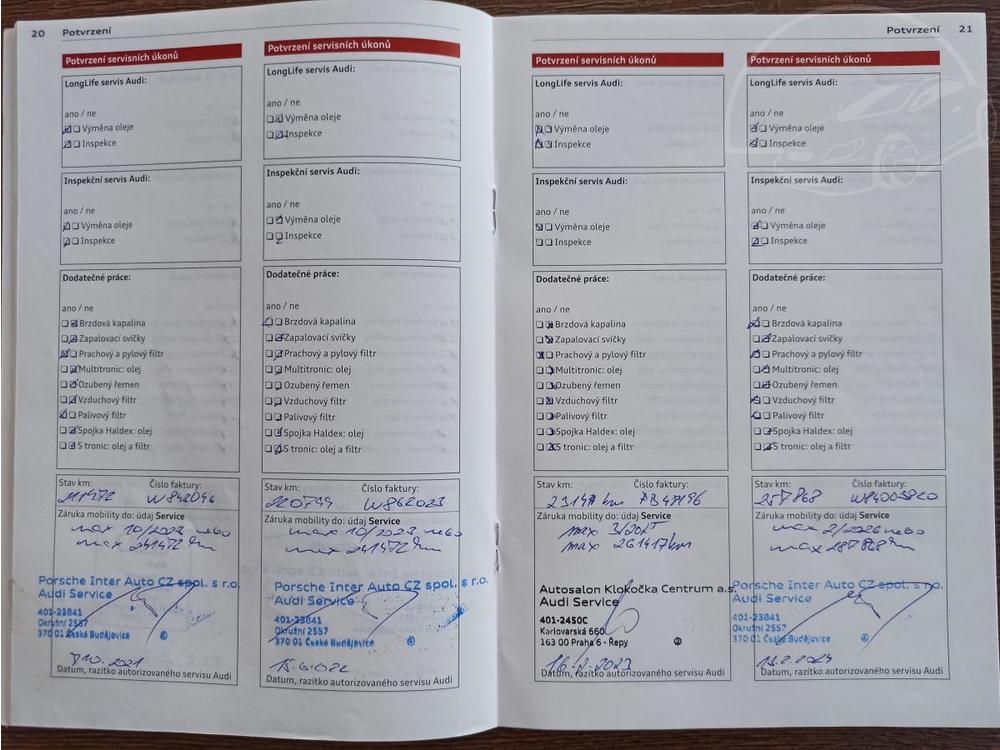 20 Potvrzení
Potvrzení servisních úkonů
LongLife servis Audi:
ano / ne
Výměna oleje
Inspekce
Inspekční servis Audi:
ano / ne
Výměna oleje
Inspekce
Dodatečné práce:
ano / ne
Brzdová kapalina
Zapalovací svíčky
Prachový a pylový filtr
Multitronic: olej
Ozubený řemen
Vzduchový filtr
Palivový filtr
Spojka Haldex: olej
S tronic: olej a filtr
Stav km: Číslo faktury:
211472 W842046
Záruka mobility do: údaj Service
max 10/2023 nebo
max 241472 km
Porsche Inter Auto CZ spol. s r.o.
Audi Service
401-23841
Okružní 2557
370 01 České Budějovice
10. 2021
Datum, razítko autorizovaného servisu Audi
Potvrzení servisních úkonů
LongLife servis Audi:
ano / ne
Výměna oleje
Inspekce
Inspekční servis Audi:
ano / ne
Výměna oleje
Inspekce
Dodatečné práce:
ano / ne
Brzdová kapalina
Zapalovací svíčky
Prachový a pylový filtr
Multitronic: olej
Ozubený řemen
Vzduchový filtr
Palivový filtr
Spojka Haldex: olej
S tronic: olej a filtr
Stav km: Číslo faktury:
W862023
Záruka mobility do: údaj Service
max 10/2023 nebo
max 241472 km
Porsche Inter Auto CZ spol. s r.o.
Audi Service
401-23841
Okružní 2557
370 01 České Budějovice
Datum, razítko autorizovaného servisu Audi
Potvrzení 21
Potvrzení servisních úkonů
LongLife servis Audi:
ano / ne
Výměna oleje
Inspekce
Inspekční servis Audi:
ano / ne
Výměna oleje
Inspekce
Dodatečné práce:
ano / ne
Brzdová kapalina
Zapalovací svíčky
Prachový a pylový filtr
Multitronic: olej
Ozubený řemen
Vzduchový filtr
Palivový filtr
Spojka Haldex: olej
S tronic: olej a filtr
Stav km: Číslo faktury:
km
Záruka mobility do: údaj Service
max 3/2025
max 261417km
Autosalon Klokočka Centrum a.s.
Audi Service
401-2450C
Karlovarská 660
163 00 Praha 6 - Řepy
16.2.2023
Datum, razítko autorizovaného servisu Audi
Potvrzení servisních úkonů
LongLife servis Audi:
ano / ne
Výměna oleje
Inspekce
Inspekční servis Audi:
ano / ne
Výměna oleje
Inspekce
Dodatečné práce:
ano / ne
Brzdová kapalina
Zapalovací svíčky
Prachový a pylový filtr
Multitronic: olej
Ozubený řemen
Vzduchový filtr
Palivový filtr
Spojka Haldex: olej
S tronic: olej a filtr
Stav km: Číslo faktury:
257868 W84005820
Záruka mobility do: údaj Service
max 2/2026 nebo
max 287868 km
Porsche Inter Auto CZ spol. s r.o.
Audi Service
401-23841
Okružní 2557
370 01 České Budějovice
13.2.2024
Datum, razítko autorizovaného servisu Audi